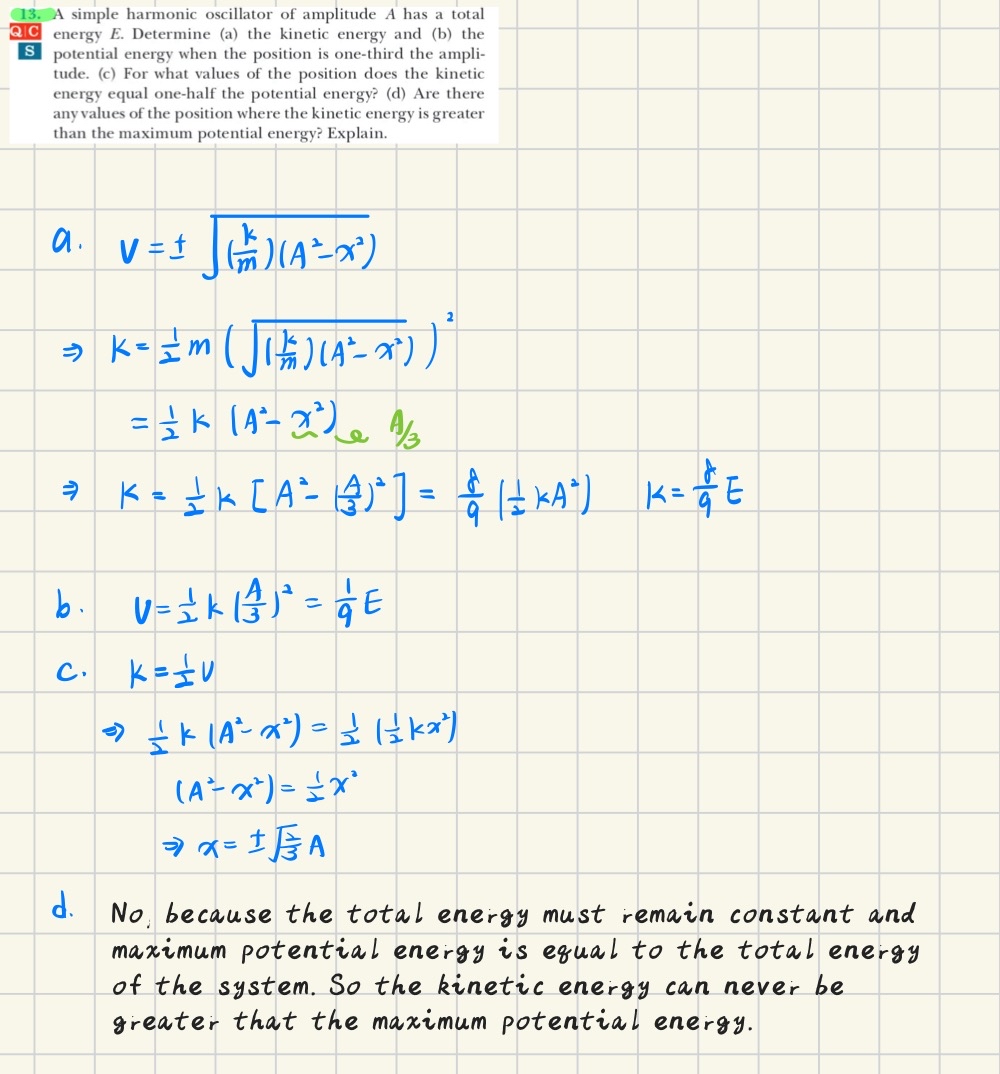 13. A simple harmonic oscillator of amplitude A has a total
Q|C energy E. Determine (a) the kinetic energy and (b) the
S potential energy when the position is one-third the ampli-
tude. (c) For what values of the position does the kinetic
energy equal one-half the potential energy? (d) Are there
any values of the position where the kinetic energy is greater
than the maximum potential energy? Explain.
a. V = ± √((k/m)(A² − x²))
⇒ K = 1/2 m (√((k/m)(A² − x²)))²
= 1/2 k (A² − x²) A/3
⇒ K = 1/2 k [A² − (A/3)²] = 8/9 (1/2 kA²) K = 8/9 E
b. U = 1/2 k (A/3)² = 1/9 E
c. K = 1/2 U
⇒ 1/2 k (A² − x²) = 1/2 (1/2 kx²)
(A² − x²) = 1/2 x²
⇒ x = ± √(2/3) A
d. No, because the total energy must remain constant and
maximum potential energy is equal to the total energy
of the system. So the kinetic energy can never be
greater that the maximum potential energy.